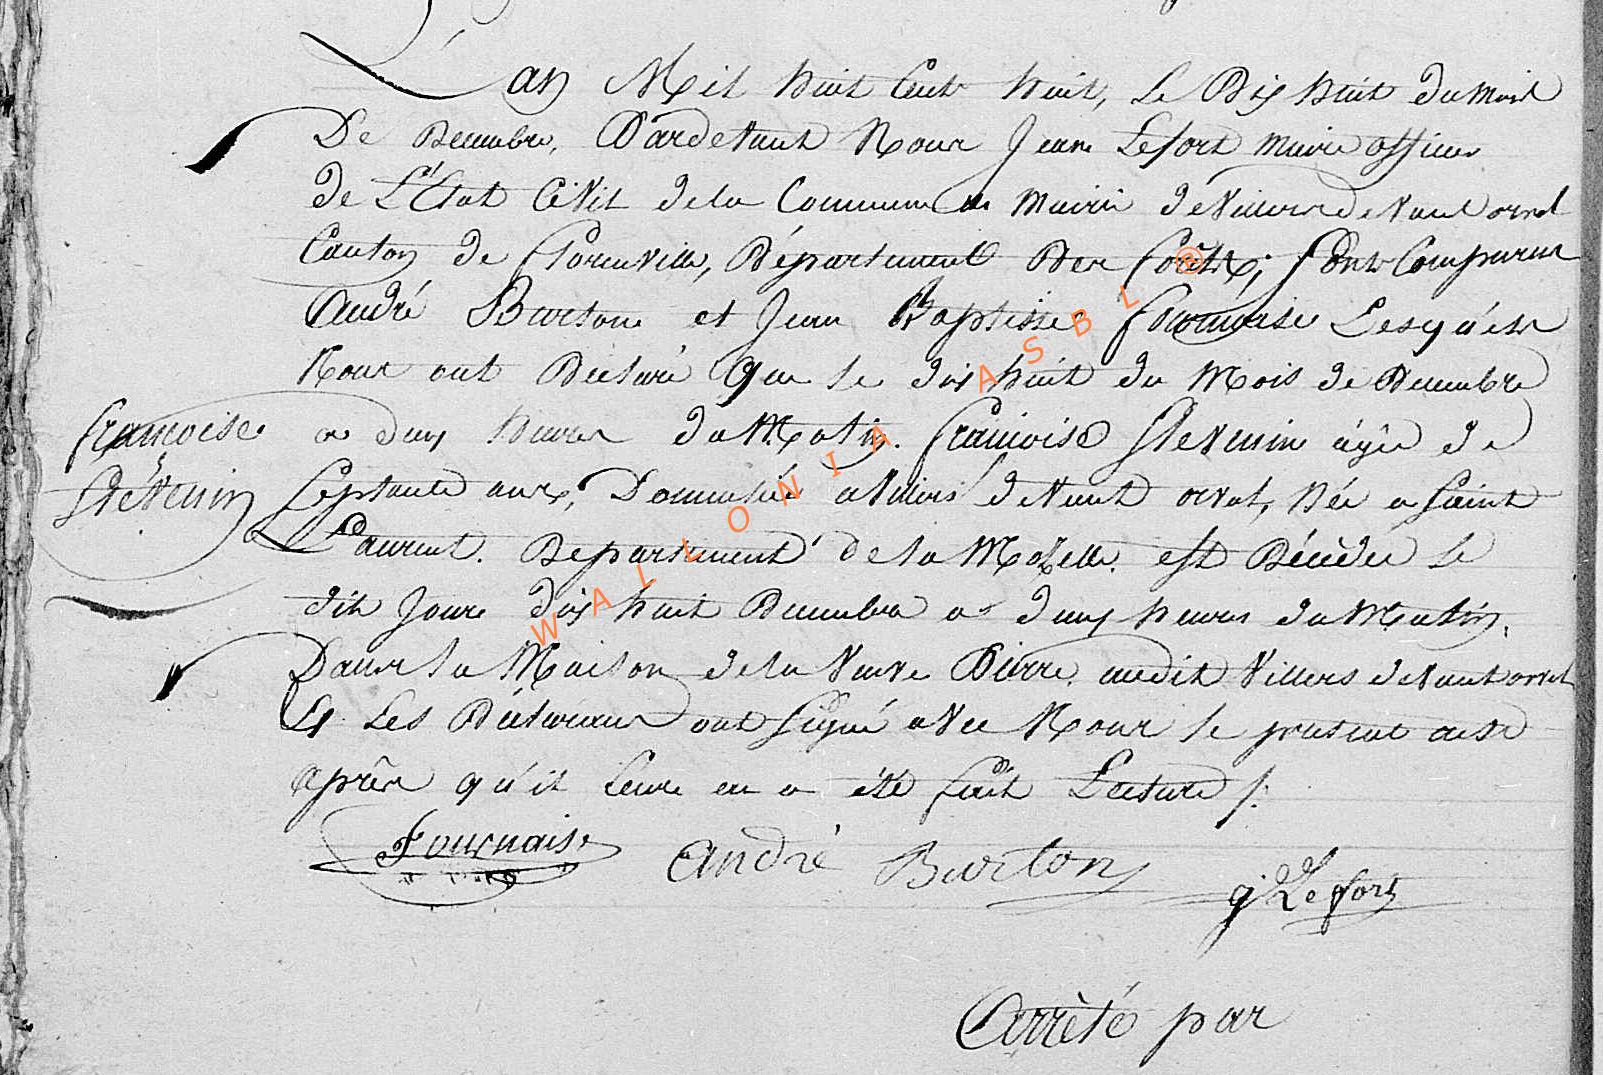 L'an Mil huit Cent huit, Le Dix huit du mois
De Decembre, Pardevant Nous Jean Lefort maire officier
de L'Etat Civil de la Commune de mairie de Villers devant orval
Canton de Florenville, Département Des Forêts, Sont Comparus
André Burton et Jean Baptiste Fournaise Lesquels
Nous ont Déclaré Que le dix huit du Mois de Decembre
Françoise
Stévenin
a deux heures du Matin. Françoise Stevenin agée de
septante ans, Domiciliée a Villers devant orval, Née a Saint
Laurent. Departement de la Mozelle. est Décédée le
dit Jour dix huit Decembre a deux heures du Matin,
Dans la Maison de la Veuve Pierre audit Villers devant orval
Et Les Déclarans ont signé avec Nous le present acte
après qu'il Leurs en a été fait Lecture /.
Fournaise André Burton j. Lefort
Arrêté par
WALLONIA ASBL ®